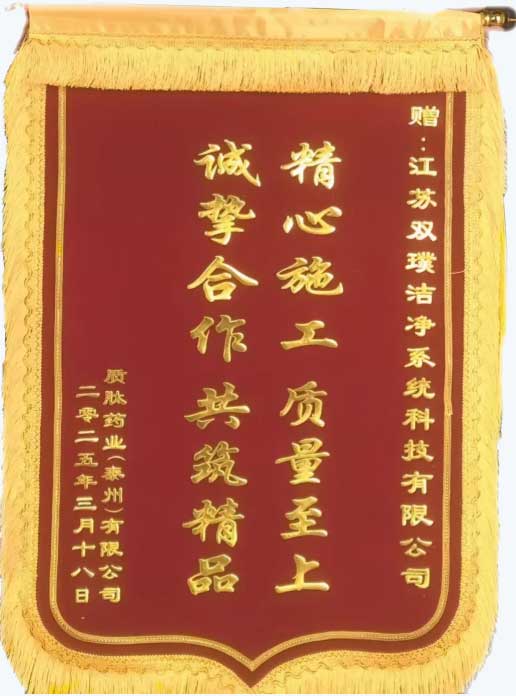 赠：江苏双璞洁净系统科技有限公司
精心施工 质量至上
诚挚合作 共筑精品
质肽药业（泰州）有限公司
二零二五年三月十八日